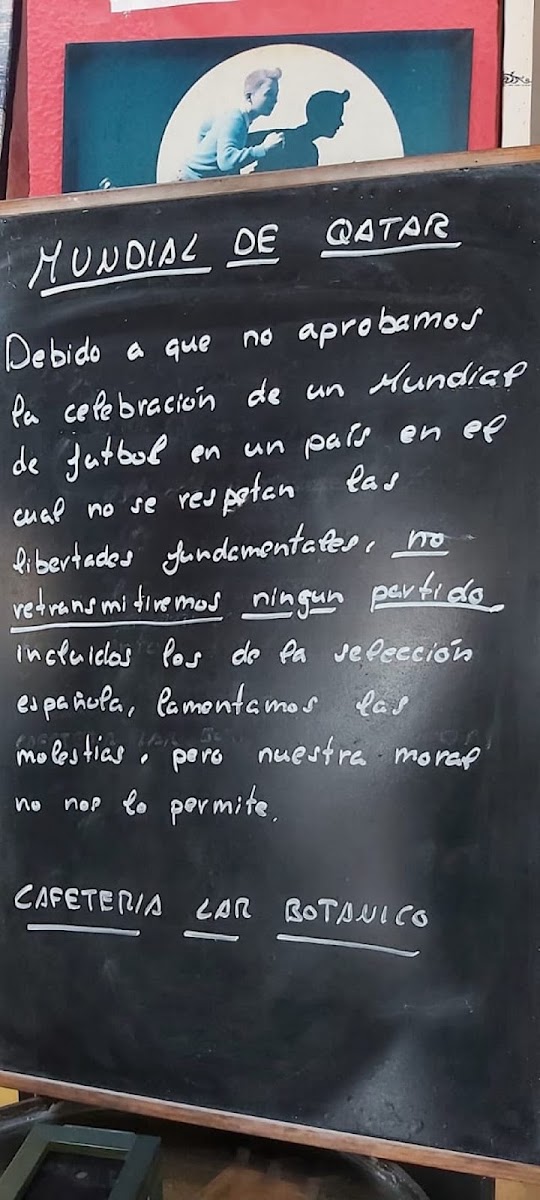 MUNDIAL DE QATAR
Debido a que no aprobamos
la celebración de un Mundial
de futbol en un país en el
cual no se respetan las
libertades fundamentales, no
retransmitiremos ningun partido
incluidos los de la selección
española, lamentamos las
molestias, pero nuestra moral
no nos lo permite.
CAFETERIA LAR BOTANICO